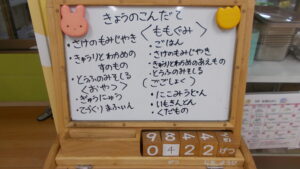 きょうのこんだて
・さけのもみじやき
・きゅうりとわかめの
すのもの
・とうふのみそしる
〈おやつ〉
・ぎゅうにゅう
・てづくりまふぃん
〈ももぐみ〉
・ごはん
・さけのもみじやき
・きゅうりとわかめのあえもの
・とうふのみそしる
〈ごごしょく〉
・にこみうじゃん
・いもきんとん
・くだもの
0 4 2 2